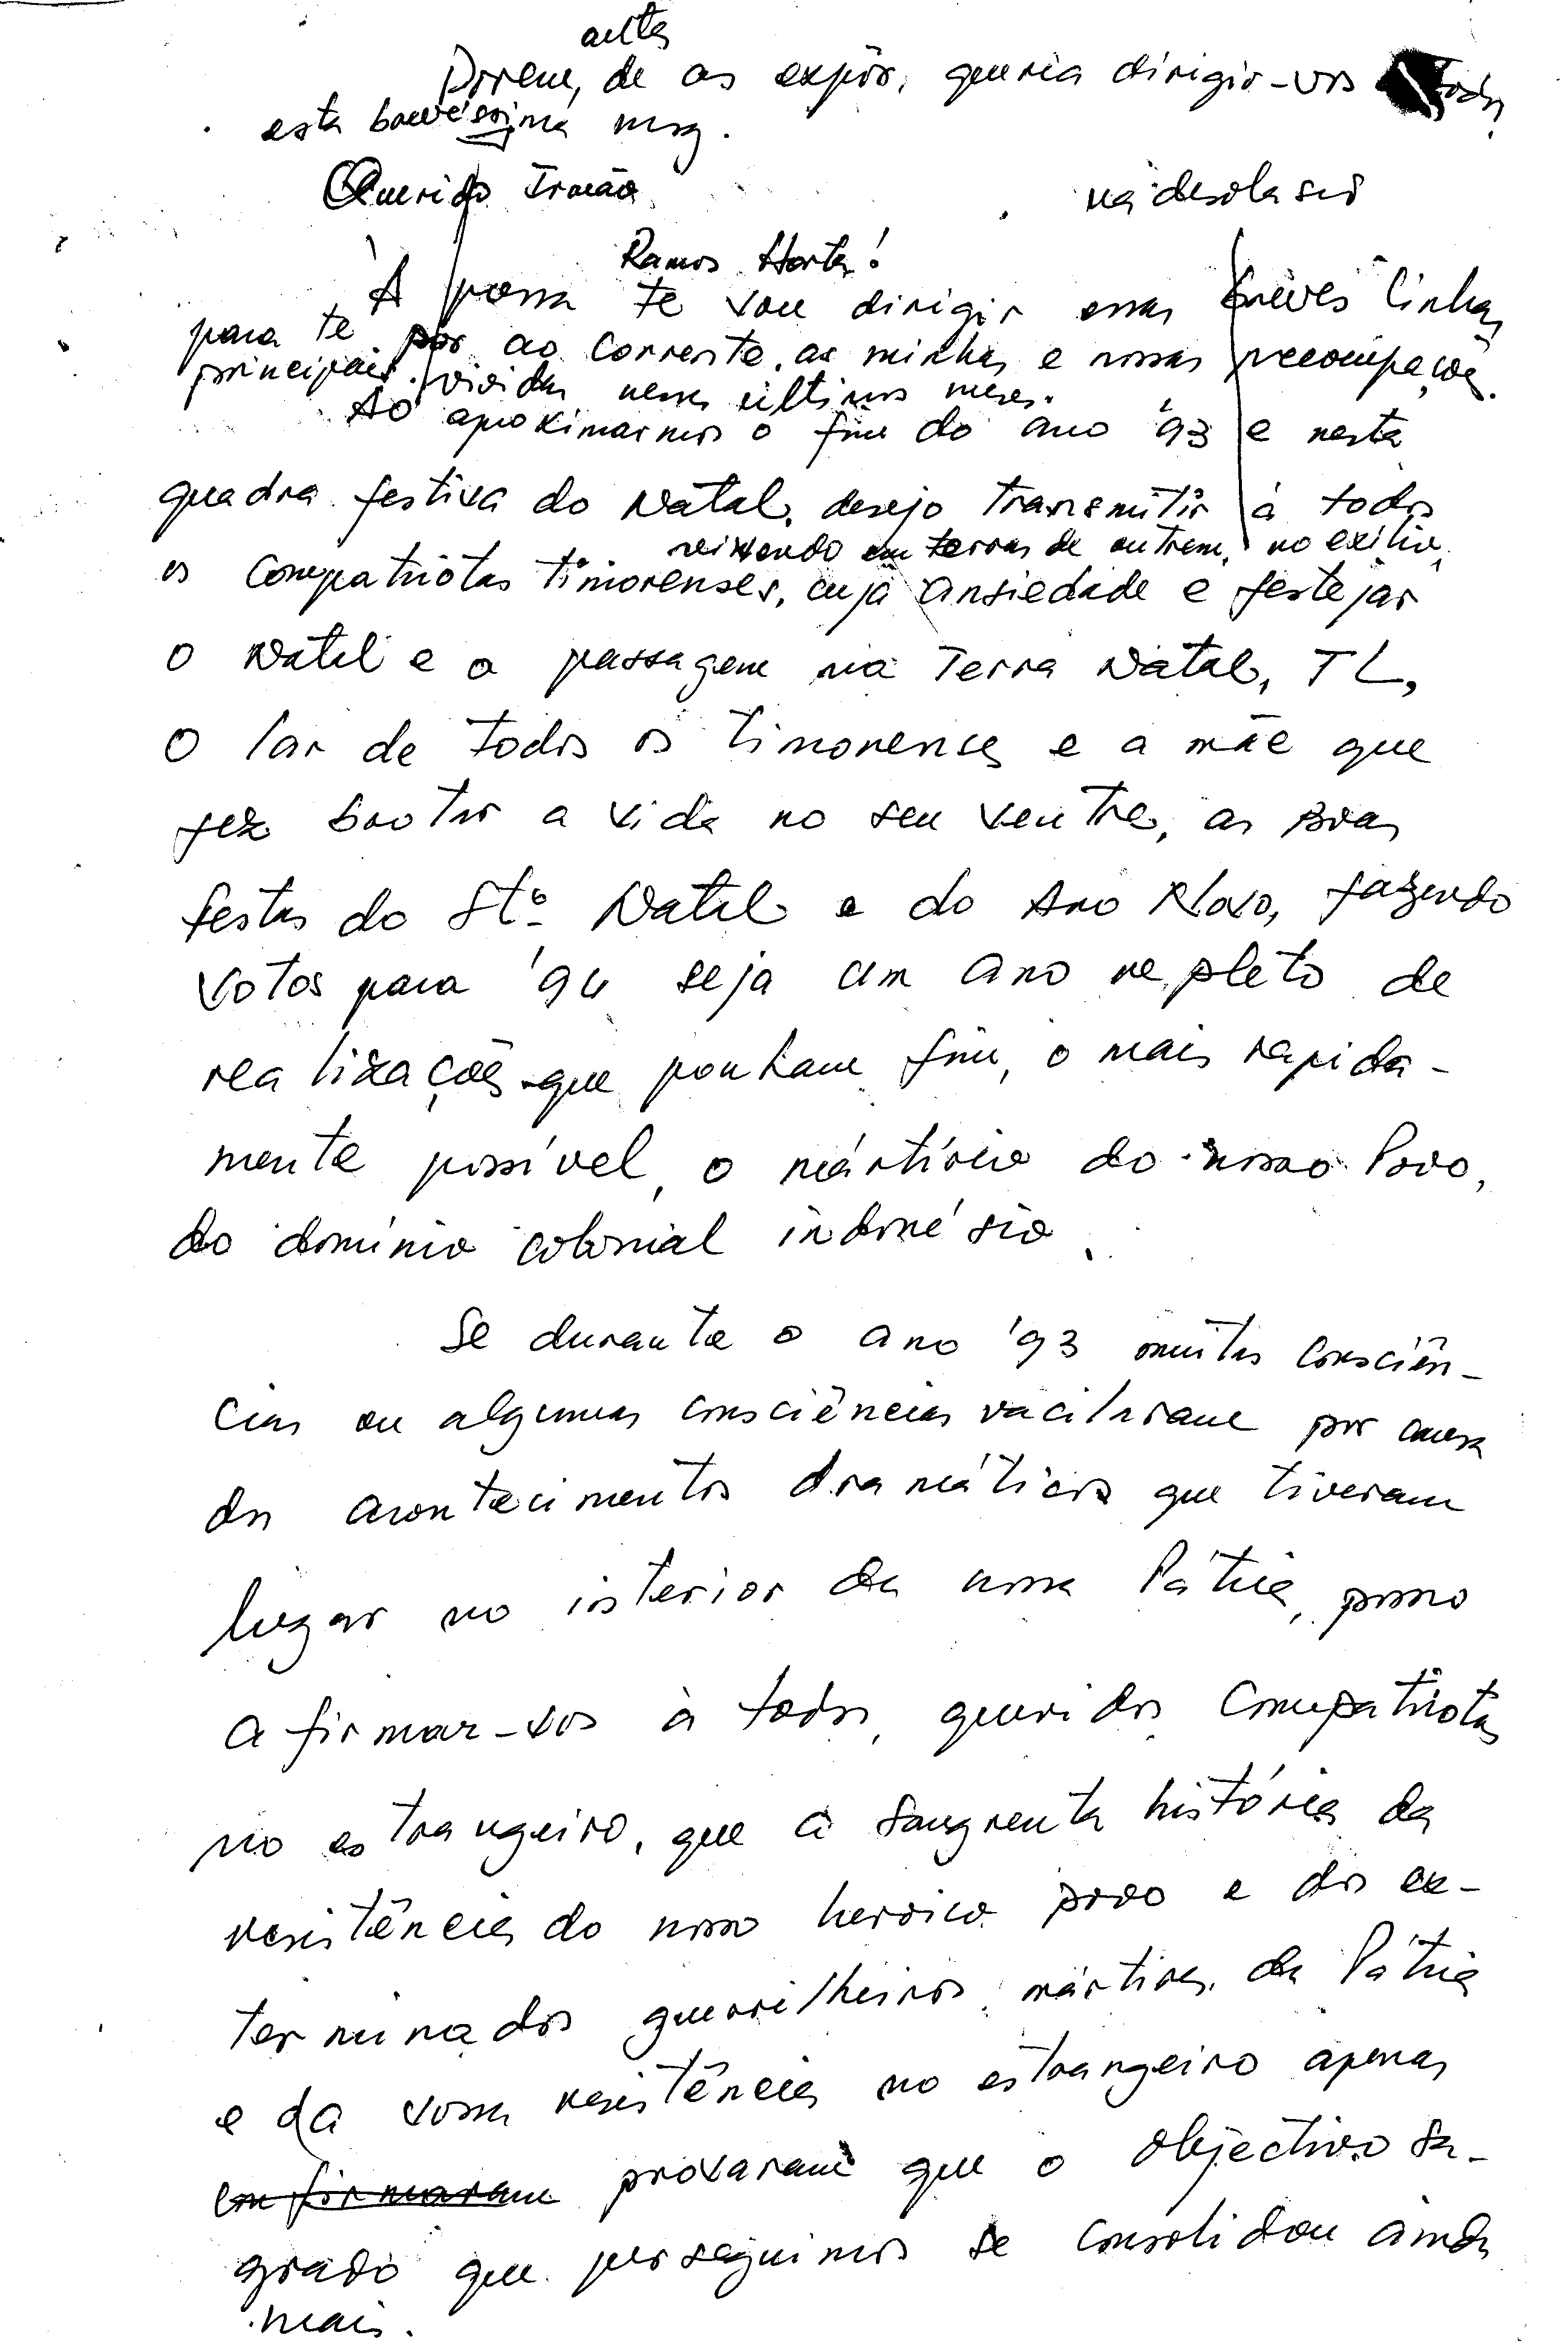 antes
Porém, de as expôr, queria dirigir-vos a todos,
esta brevíssima msg.
Querido Irmão
Ramos Horta!
À pressa te vou dirigir essas breves linhas
para te pôr ao corrente, as minhas e nossas preocupações
principais vividas nesses últimos meses.
Ao aproximarmos o fim do ano '93 e nesta
quadra festiva do Natal, desejo transmitir à todos
vivendo em terras de outrem, no exílio,
os Compatriotas timorenses, cuja ansiedade e festejar
o Natal e a passagem na Terra Natal, TL,
o lar de todos os timorenses e a mãe que
fez brotar a vida no seu ventre, as Boas
festas do Sto. Natal e do Ano Novo, fazendo
votos para '94 seja um ano repleto de
realizações que ponham fim, o mais rapida-
mente possível, o mártírio do nosso Povo,
do domínio colonial indonésio.
Se durante o ano '93 muitas consciên-
cias ou algumas consciências vacilaram por causa
dos acontecimentos dramáticos que tiveram
lugar no interior da nossa Pátria, posso
afirmar-vos à todos, queridos Compatriotas
no estrangeiro, que a sangrenta história da
resistência do nosso heroico povo e dos ex-
terminados guerrilheiros, mártires da Pátria
e da vossa resistência no estrangeiro apenas
confirmaram provaram que o objectivo sa-
grado que perseguimos se consolidou ainda
mais.